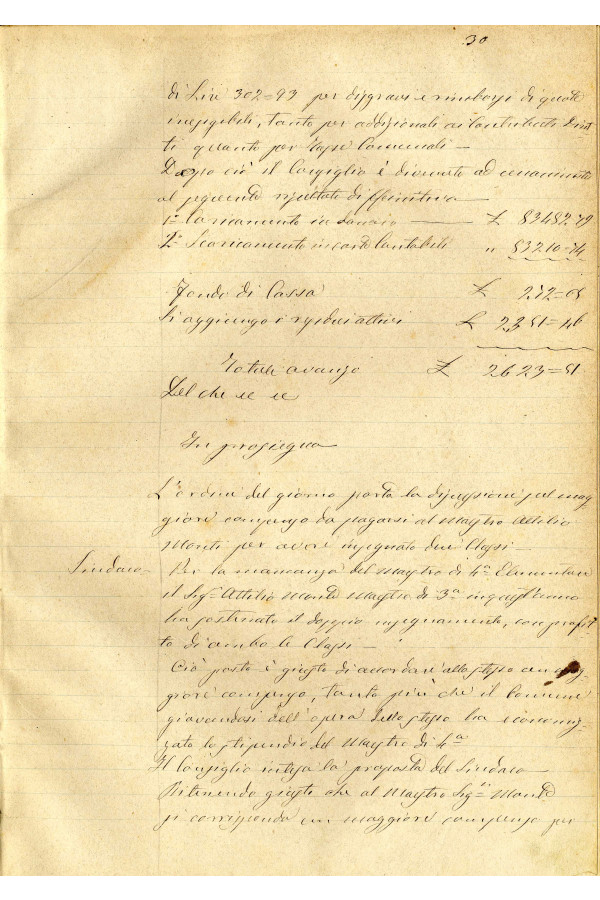 30
di Lire 302=93 per disgravi e rimborsi di quote
inesigibili, tanto per addizionali ai Contributi Diret
ti quanto per Tasse Comunali —
Dopo ciò il Consiglio è divenuto ad
al seguente risultato diffinitivo —
1° Caricamento in danaro — £ 83482=79
2° Scaricamento in carte Contabili " 83210=74
Fondo di Cassa £ 272=05
Si aggiungo i residui attivi £ 2351=46
Totale avanzo £ 2623=51
Del che ec ec
In prosieguo
L'ordine del giorno porta la discussione sul mag
giore compenso da pagarsi al Maestro Attilio
Monti per avere insegnato due Classi —
Sindaco — Per la mancanza del Maestro di 4ª Elementare
il Sigr Attilio Monti Maestro di 3ª in quest'anno
ha sostenuto il doppio insegnamento, con profit
to di ambo le Classi —
Ciò posto è giusto di accordare allo stesso un mag
giore compenso, tanto più che il Comune
giovandosi dell'opera dello stesso ha economiz
zato lo stipendio del Maestro di 4ª
Il Consiglio intesa la proposta del Sindaco —
Ritenendo giusto che al Maestro Sigr Monti
si corrisponda un maggiore compenso per